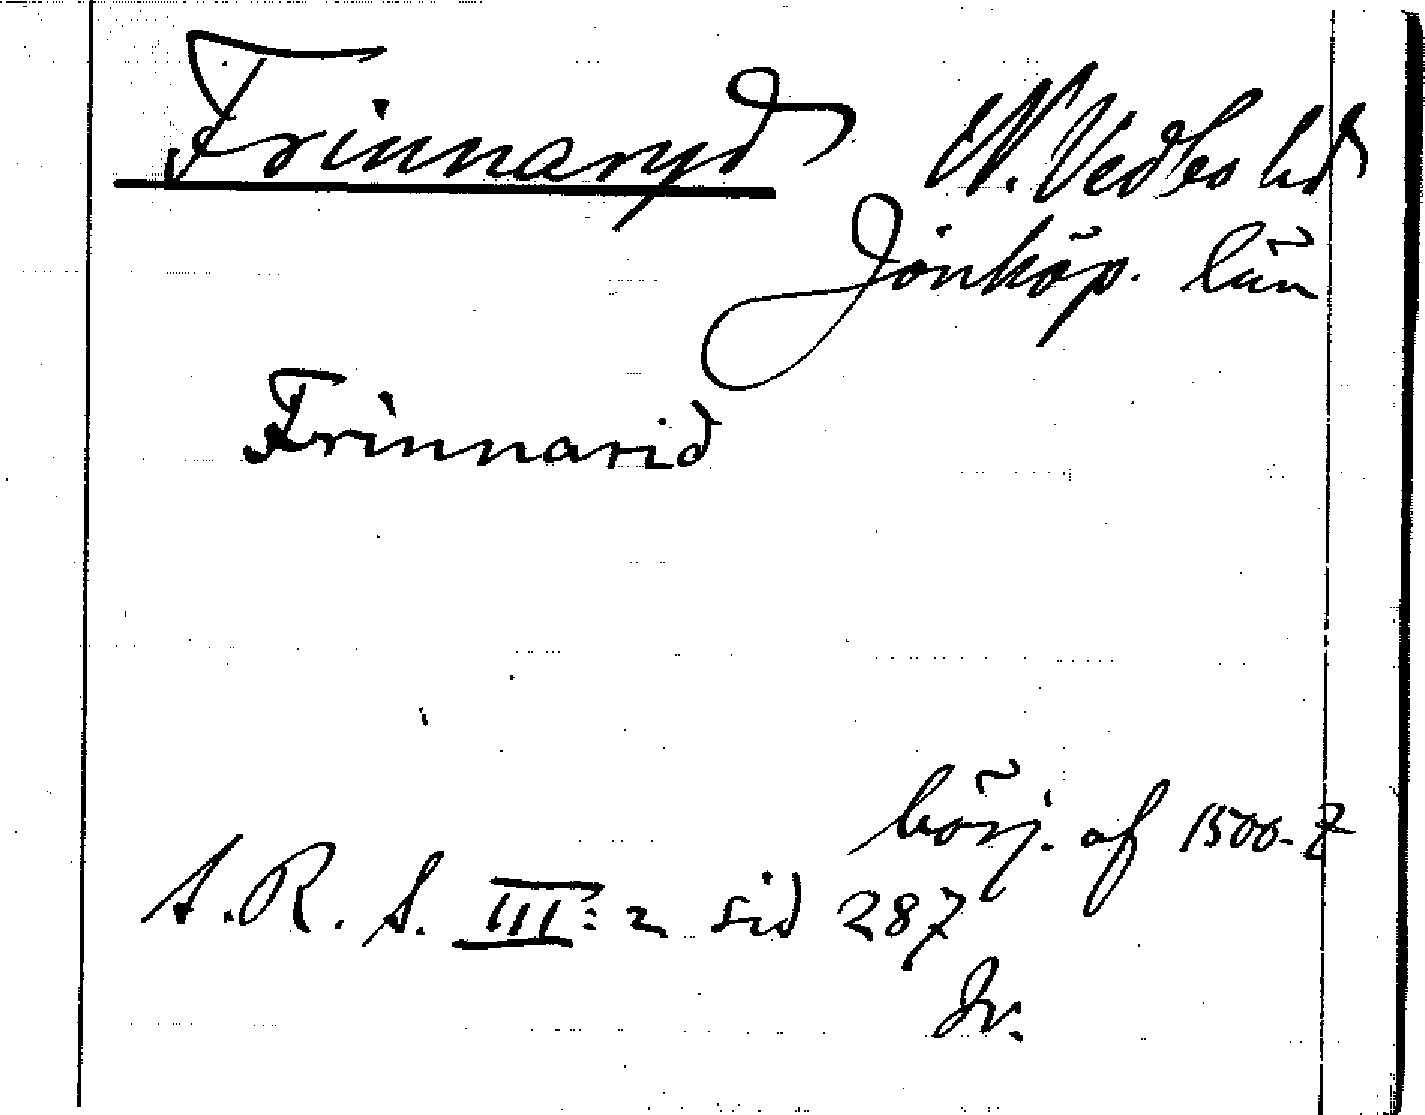 Frinnaryd N. Vedbo hd
Jönköp. län
Frinnarid
börj. af 1500-t
S.R.S. III:2 sid 287